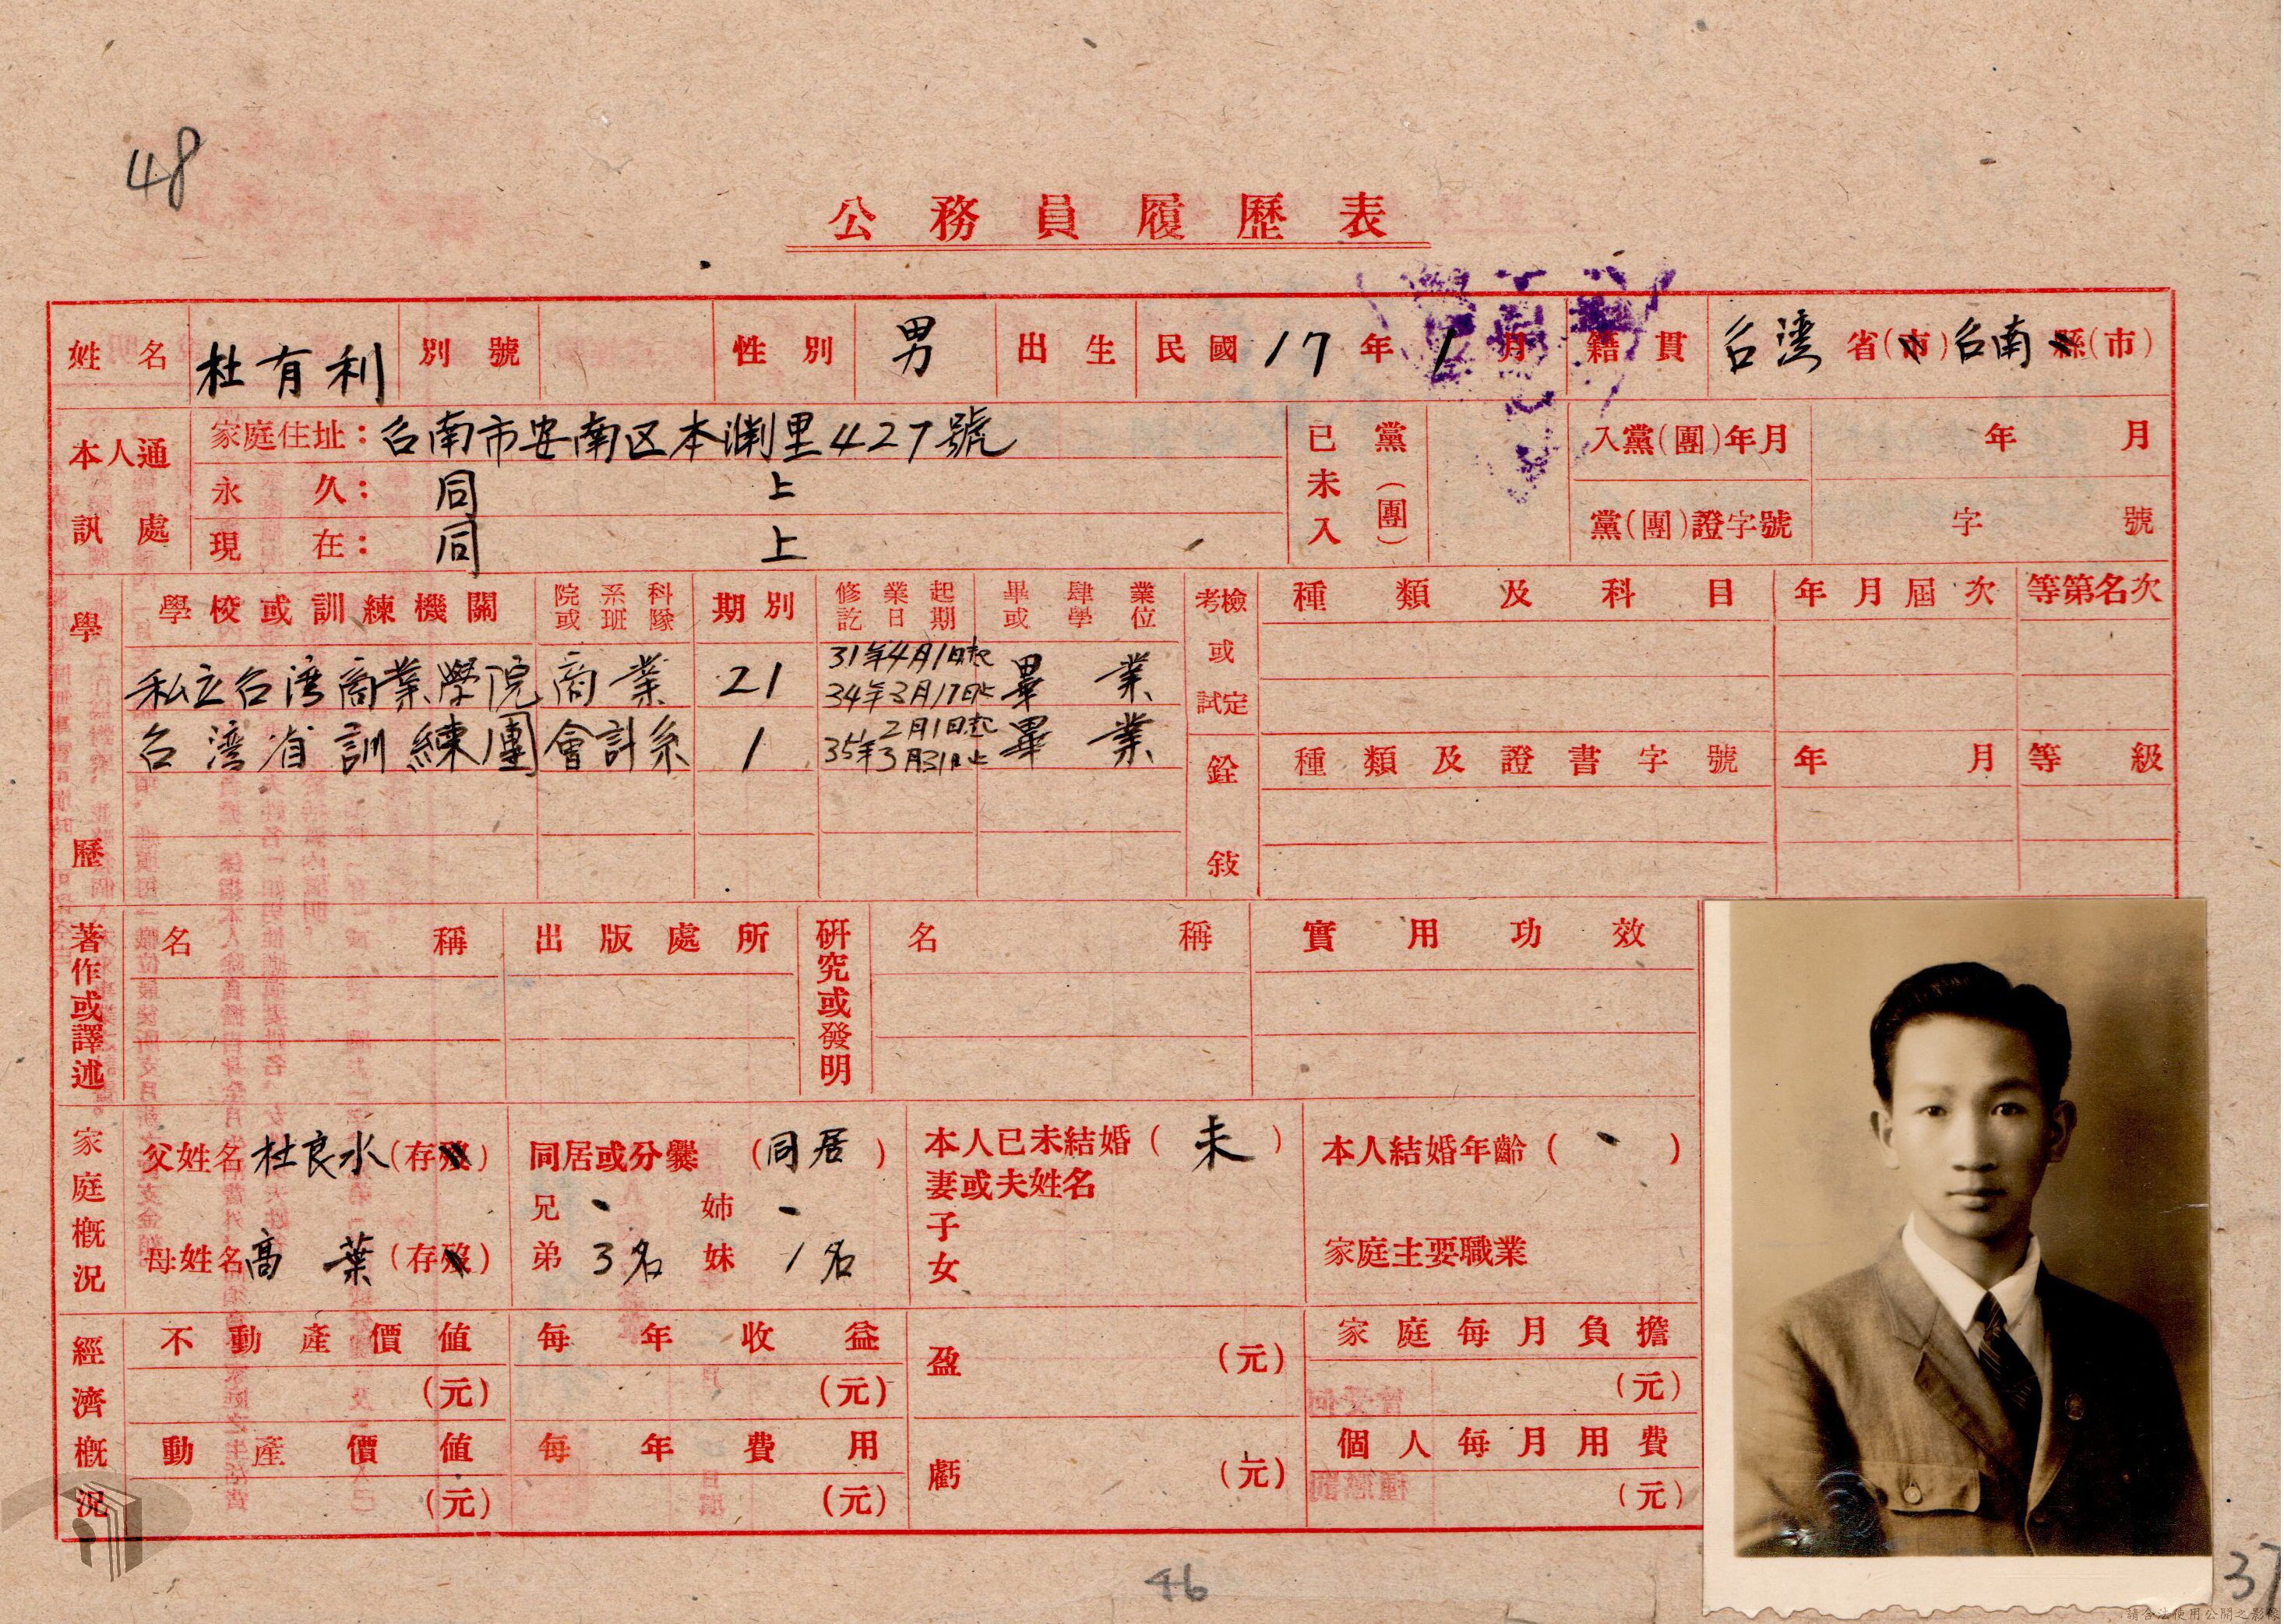 48
公務員履歷表
姓名 杜有利 別號 性別 男 出生 民國17年1月 籍貫 台湾省(市)台南縣(市)
本人通訊處
家庭住址：台南市安南区本渊里427號
永久：同上
現在：同上
已未入黨(團)
入黨(團)年月 年 月
黨(團)證字號 字 號
學歷
學校或訓練機關 院系科或班隊 期別 修業起訖日期 畢肄業或學位
私立台湾商業學院 商業 21 31年4月1日起 34年3月17日止 畢業
台湾省訓練團 會計系 1 35年2月1日起 3月31日止 畢業
考檢或試定 種類及科目 年月屆次 等第名次
銓敍 種類及證書字號 年月 等級
著作或譯述 名稱 出版處所
研究或發明 名稱 實用功效
家庭概況
父姓名 杜良水 (存歿) 同居或分爨 (同居) 本人已未結婚 (未) 本人結婚年齡 ( )
妻或夫姓名
兄 、 姊 、
子
母姓名 高葉 (存歿) 弟 3名 妹 1名 女 家庭主要職業
經濟概況
不動產價值 (元) 每年收益 (元) 盈 (元) 家庭每月負擔 (元)
動產價值 (元) 每年費用 (元) 虧 (元) 個人每月用費 (元)
46
37
請合法使用公開之影像